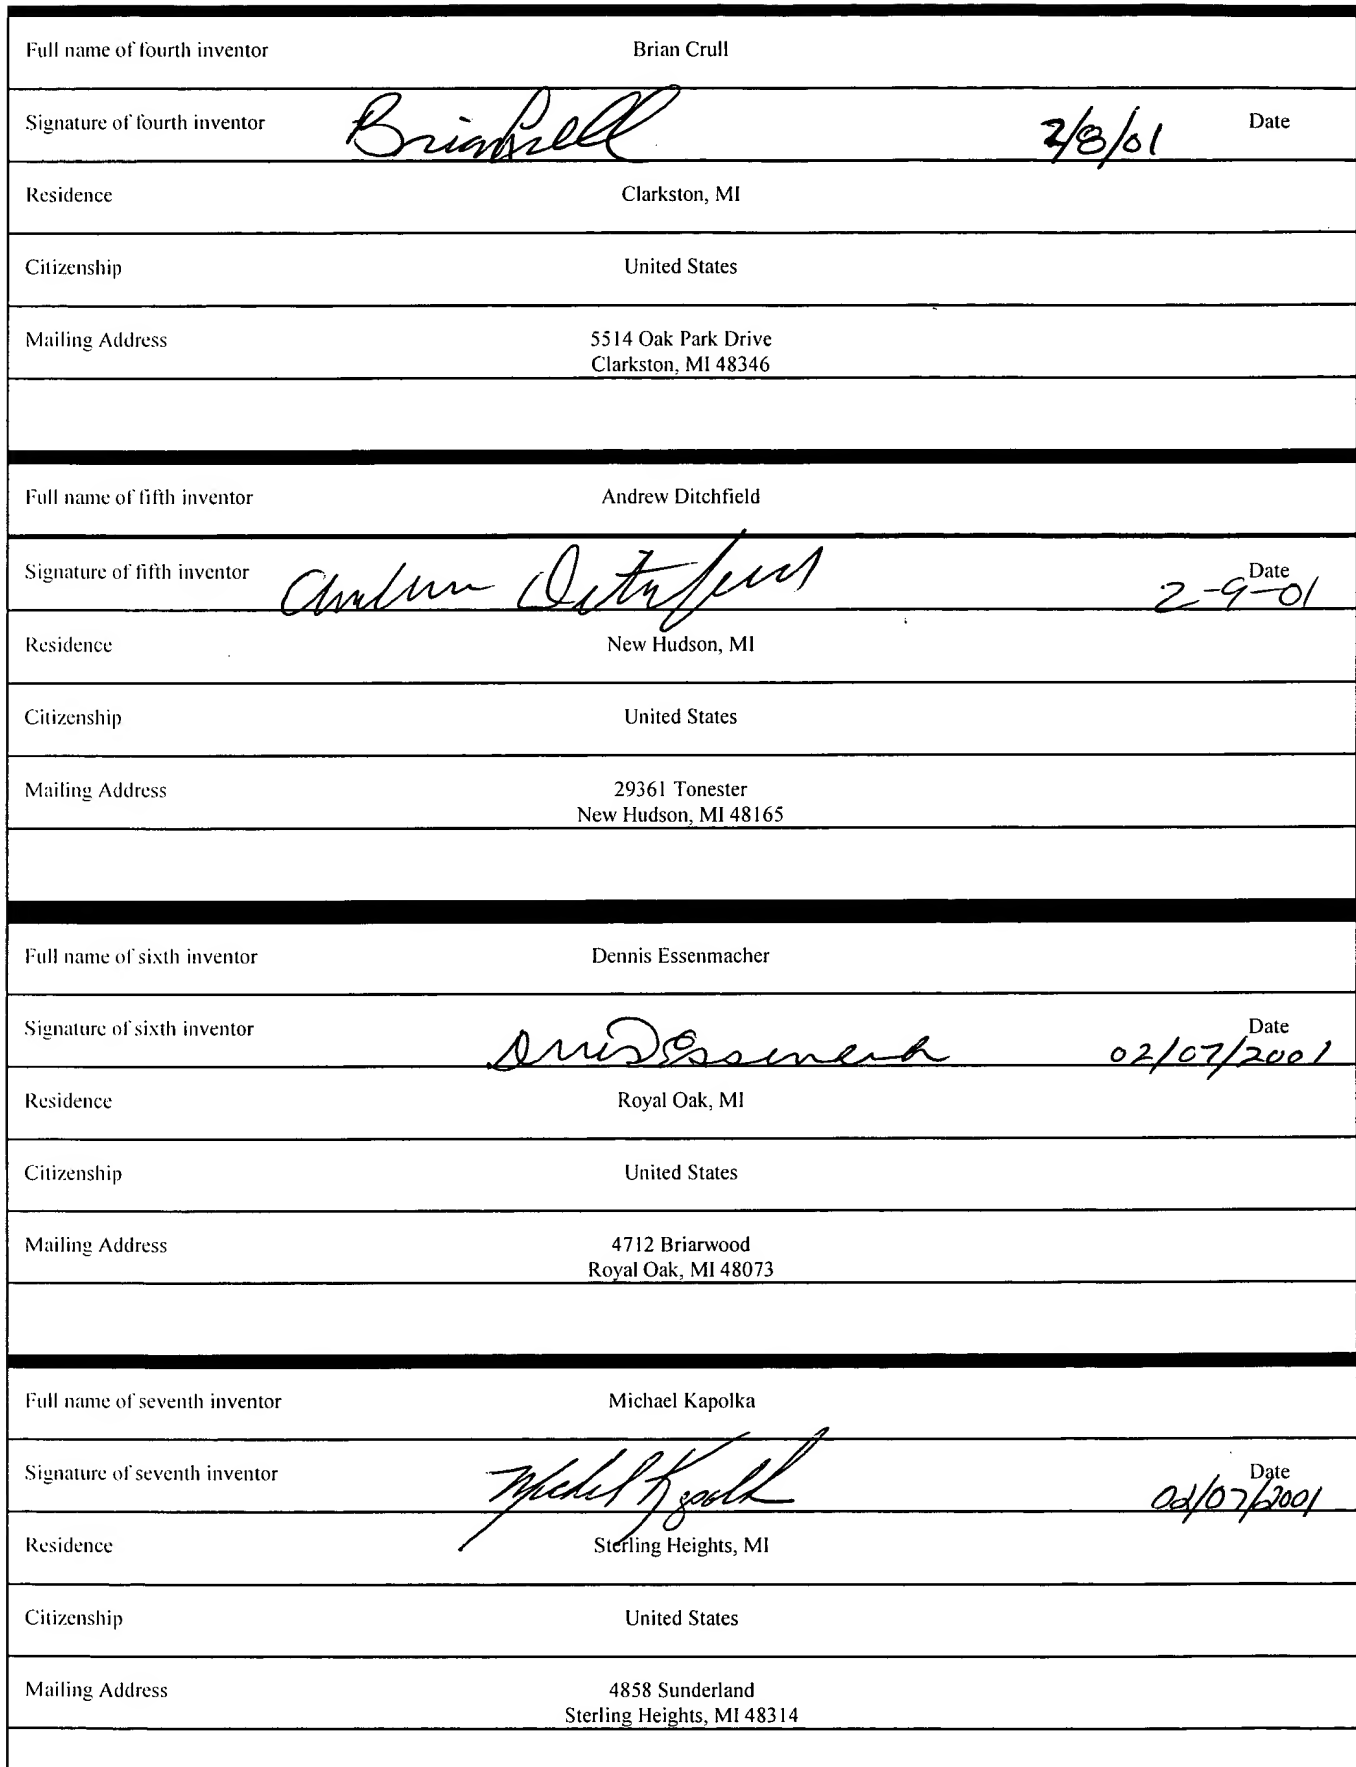 Full name of fourth inventor Brian Crull
Signature of fourth inventor Brian Crull 2/8/01 Date
Residence Clarkston, MI
Citizenship United States
Mailing Address 5514 Oak Park Drive
Clarkston, MI 48346
Full name of fifth inventor Andrew Ditchfield
Signature of fifth inventor Andrew Ditchfield 2-9-01 Date
Residence New Hudson, MI
Citizenship United States
Mailing Address 29361 Tonester
New Hudson, MI 48165
Full name of sixth inventor Dennis Essenmacher
Signature of sixth inventor Dennis Essenmacher 02/07/2001 Date
Residence Royal Oak, MI
Citizenship United States
Mailing Address 4712 Briarwood
Royal Oak, MI 48073
Full name of seventh inventor Michael Kapolka
Signature of seventh inventor Michael Kapolka 02/07/2001 Date
Residence Sterling Heights, MI
Citizenship United States
Mailing Address 4858 Sunderland
Sterling Heights, MI 48314